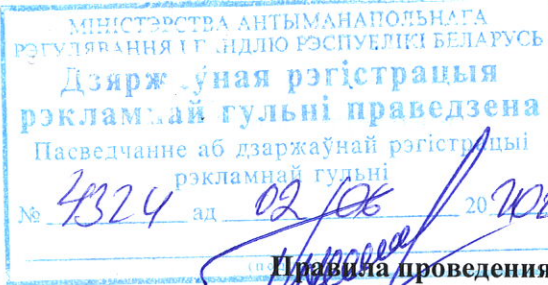 МІНІСТЭРСТВА АНТЫМАНАПОЛЬНАГА
РЭГУЛЯВАННЯ І ГАНДЛЮ РЭСПУБЛІКІ БЕЛАРУСЬ
Дзяржаўная рэгістрацыя
рэкламнай гульні праведзена
Пасведчанне аб дзяржаўнай рэгістрацыі
рэкламнай гульні
№ 4324 ад 02 06 20
Правила проведения